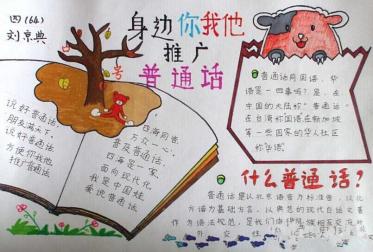 四(64)
刘京典
身边你我他
推广
普通话
号
说好普通话,
朋友满天下。
说好普通话,
方便你我他
推广普通话
四海同音,
万众一心。
普及普通话,
四海是一家。
面向现代化,
我是中国娃
爱说普通话
普通话商国语,华
语是一回事吗?是,在
中国的大陆称"普通话"
在台湾称国语,在新加坡
等一些国家的华人社区
称华语。
什么普通话?
普通话是以北京语音为标准音,以北
方话为基础方言,以典范的现代白话文著
作为语法规范,是我们